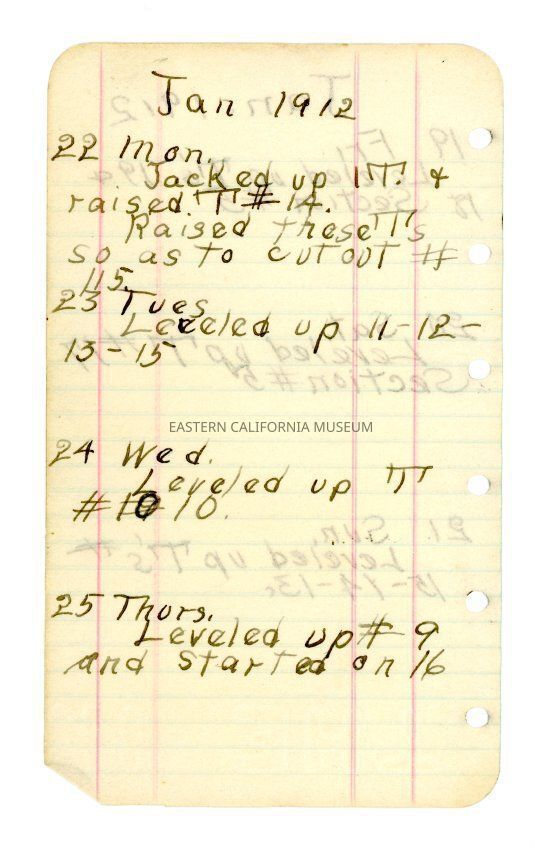 Jan 1912
22 Mon.
Jacked up 1 "T". &
raised "T" # 14.
Raised these "T"s
so as to cut out #
115.
23 Tues
Leveled up 11-12-
13-15
EASTERN CALIFORNIA MUSEUM
24 Wed.
Leveled up "T"
# 10 10.
25 Thurs.
Leveled up # 9
and started on 16